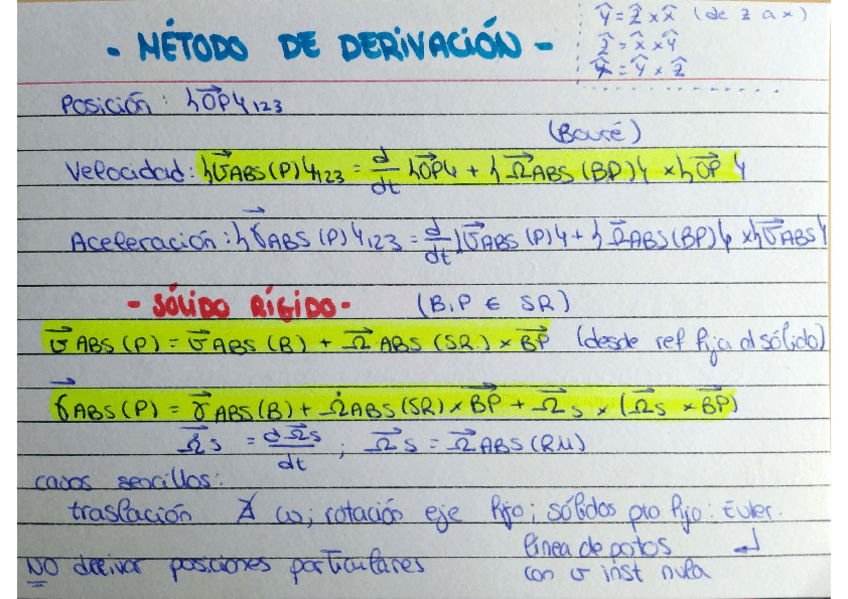 - MÉTODO DE DERIVACIÓN -
ŷ = ẑ x x̂ (de z a x)
ẑ = x̂ x ŷ
x̂ = ŷ x ẑ
Posición: {OP}123
(Bauré)
Velocidad: {v̄ABS(P)}123 = d/dt {OP} + {Ω̄ABS(BP)} x {OP}
Aceleración: {γ̄ABS(P)}123 = d/dt {v̄ABS(P)} + {Ω̄ABS(BP)} x {v̄ABS}
- SÓLIDO RÍGIDO - (B,P ∈ SR)
v̄ABS(P) = v̄ABS(B) + Ω̄ABS(SR) x BP (desde ref fija al sólido)
γ̄ABS(P) = γ̄ABS(B) + Ω̇ABS(SR) x BP + Ω̄s x (Ω̄s x BP)
Ω̇s = dΩ̄s/dt ; Ω̄s = Ω̄ABS(RM)
casos sencillos:
traslación ∄ ω; rotación eje fijo; sólidos pto fijo: Euler.
línea de ptos
con v inst nula
NO derivar posiciones particulares